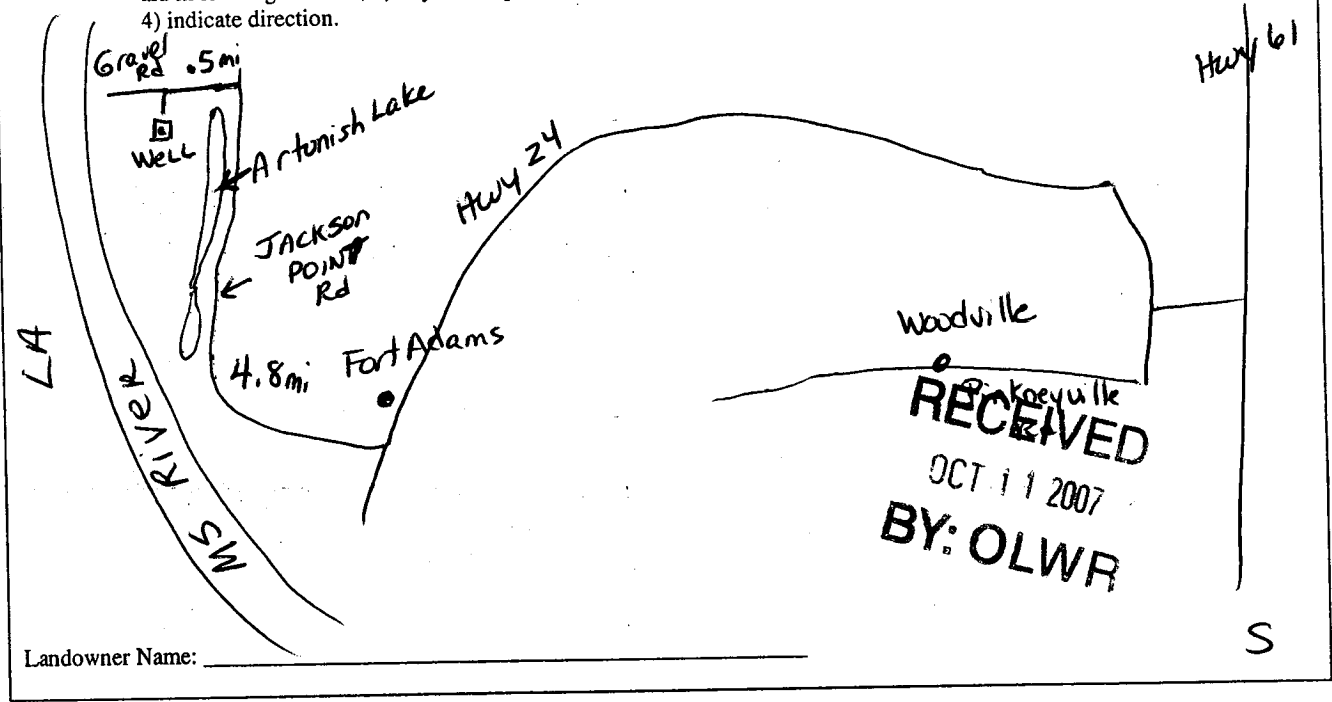 4) indicate direction.
Gravel
Rd .5 mi
Hwy 61
WELL
Artonish Lake
Hwy 24
JACKSON
POINT
Rd
LA
4.8mi
Fort Adams
Woodville
Pinkneyville
MS River
RECEIVED
OCT 11 2007
BY: OLWR
S
Landowner Name: